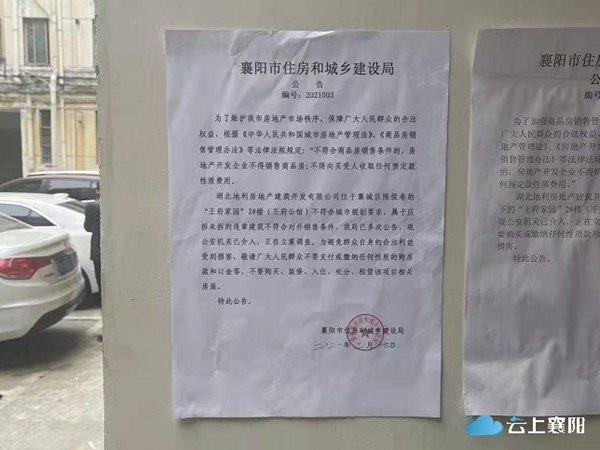 襄阳市住房和城乡建设局
公 告
编号：2021003
为了维护我市房地产市场秩序，保障广大人民群众的合法
权益，根据《中华人民共和国城市房地产管理法》、《商品房销
售管理办法》等法律法规规定："不符合商品房销售条件的，房
地产开发企业不得销售商品房；不得向买受人收取任何预定款
性质费用。
湖北地利房地产建筑开发有限公司位于襄城区陈侯巷的
"王府家园"2#楼（王府公馆）不符合城市规划要求，属于应
拆未拆的违章建筑不符合对外销售条件，我局已多次公告，现
公安机关已介入，正在立案调查。为避免群众自身的合法利益
受到损害，敬请广大人民群众不要支付或缴纳任何性质的购房
款和订金等，不要购买、装修、入住、处分、租赁该项目相关
房屋。
特此公告。
襄阳市住房和城乡建设局
襄阳市住房
公
为了加强商品房销售管
广大人民群众的合法权益，
地产管理法》、《商品房
销售管理办法》等法律法规
的，房地产开发企业不得
何预定款性质费用。"
湖北地利房地产建筑开
下的"王府家园"2#楼（王
现公安机关已介入，正在
要购买或缴纳任何性质款项
损害。
特此公告。
云上襄阳